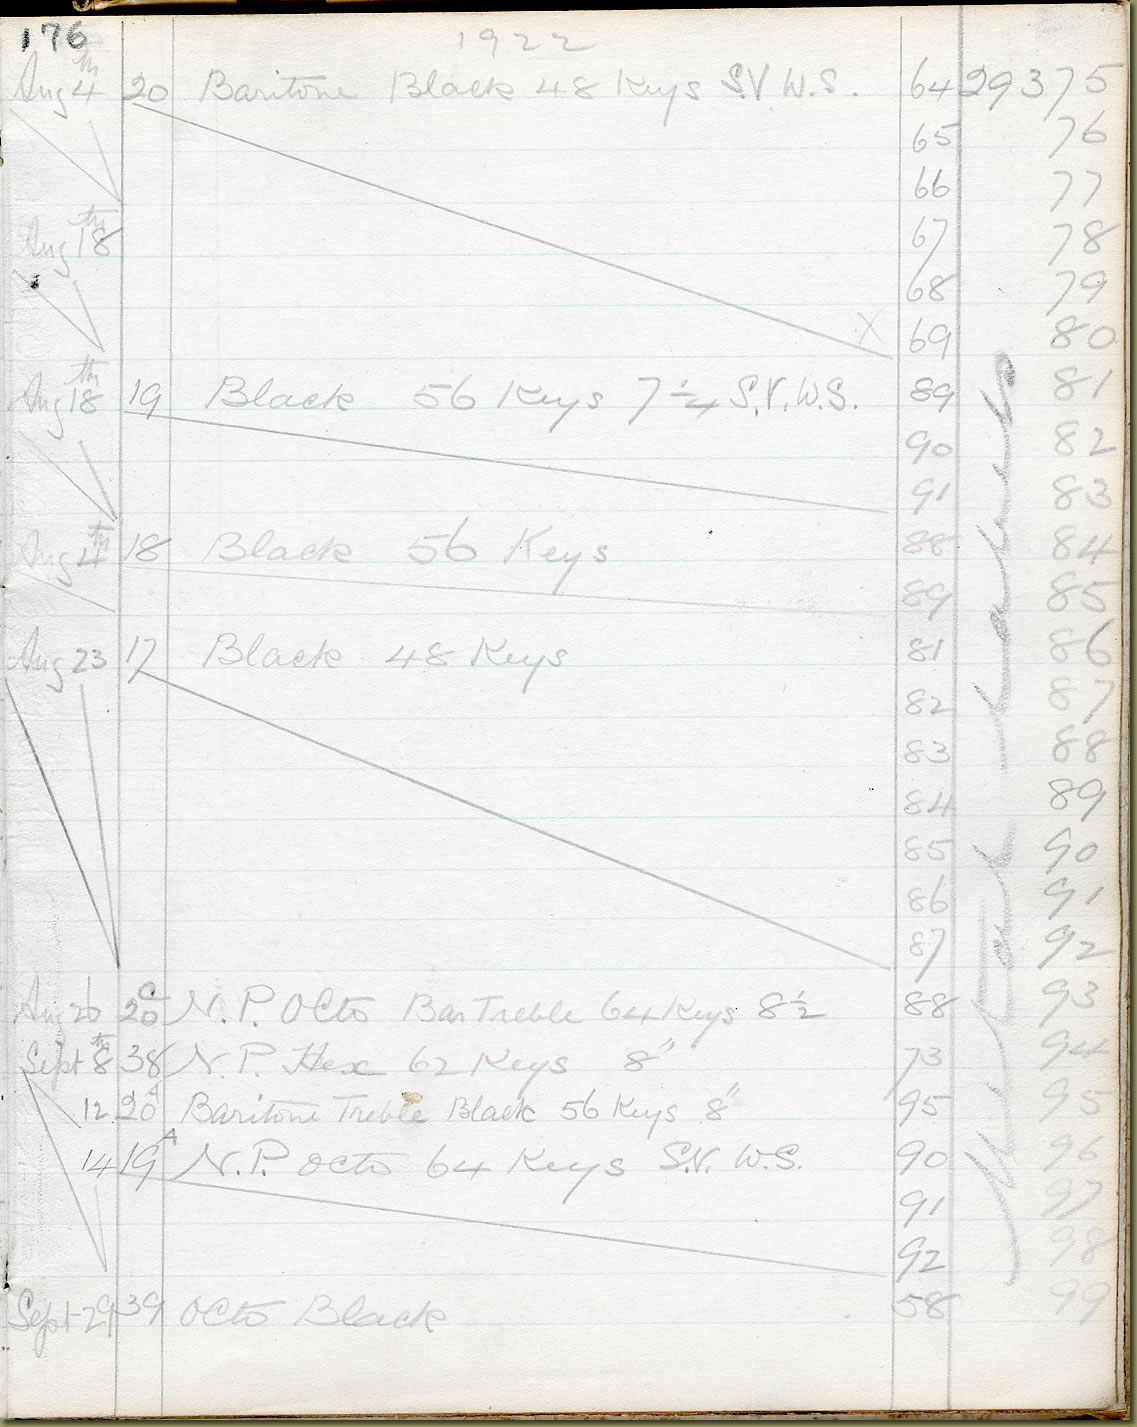 176
1922
Aug 4th 20 Baritone Black 48 Keys S.V. W.S. 64 29375
65 76
66 77
Aug 18th 67 78
68 79
X 69 80
Aug 18th 19 Black 56 Keys 7 1/4 S.V. W.S. 89 81
90 82
91 83
Aug 4th 18 Black 56 Keys 88 84
89 85
Aug 23 17 Black 48 Keys 81 86
82 87
83 88
84 89
85 90
86 91
87 92
Aug 26 20C N.P. Octo Bar Treble 64 Keys 8 1/2 88 93
Sept 8th 38 N.P. Hex 62 Keys 8" 73 94
12 20A Baritone Treble Black 56 Keys 8" 95 95
14 19A N.P. Octo 64 Keys S.V. W.S. 90 96
91 97
92 98
Sept 29 39 Octo Black 58 99